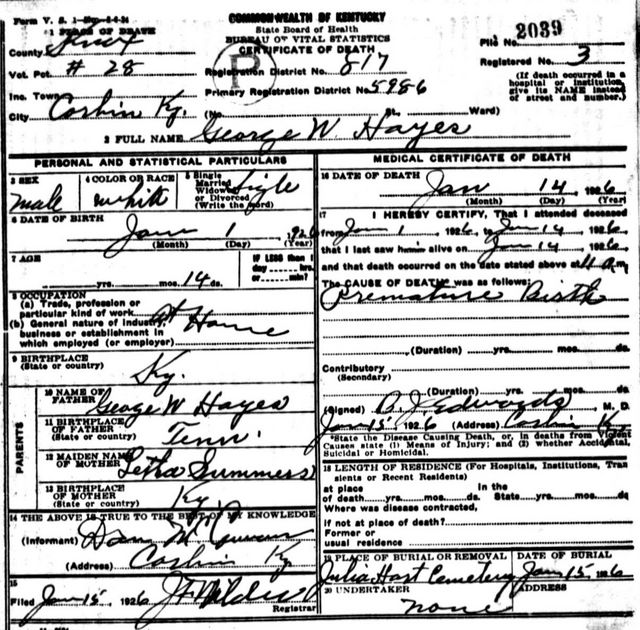 Form V. S. 1
COMMONWEALTH OF KENTUCKY
State Board of Health
BUREAU OF VITAL STATISTICS
CERTIFICATE OF DEATH
1 PLACE OF DEATH
County Knox
File No. 2039
Vot. Pct. # 28
Registration District No. 817
Registered No. 3
Inc. Town
Primary Registration District No. 5986
(If death occurred in a hospital or institution, give its NAME instead of street and number.)
City Corbin Ky. (No. St. Ward)
P
2 FULL NAME George W Hayes
PERSONAL AND STATISTICAL PARTICULARS
3 SEX
male
4 COLOR OR RACE
white
5 Single
Married
Widowed
or Divorced
(Write the word)
Sigle
6 DATE OF BIRTH
Jan 1, 1926
(Month) (Day) (Year)
7 AGE
yrs. mos. 14 ds.
IF LESS than 1
day hrs.
or min.?
8 OCCUPATION
(a) Trade, profession or
particular kind of work
(b) General nature of industry,
business or establishment in
which employed (or employer)
At Home
9 BIRTHPLACE
(State or country)
Ky.
PARENTS
10 NAME OF
FATHER
George W Hayes
11 BIRTHPLACE
OF FATHER
(State or country)
Tenn.
12 MAIDEN NAME
OF MOTHER
Letha Summers
13 BIRTHPLACE
OF MOTHER
(State or country)
Ky.
14 THE ABOVE IS TRUE TO THE BEST OF MY KNOWLEDGE
(Informant) Dan
(Address) Corbin Ky
15
Filed Jan 15, 1926
Registrar
MEDICAL CERTIFICATE OF DEATH
16 DATE OF DEATH
Jan 14, 1926
(Month) (Day) (Year)
17 I HEREBY CERTIFY, That I attended deceased
from Jan 1, 1926, to Jan 14, 1926
that I last saw him alive on Jan 14, 1926
and that death occurred on the date stated above at 11 a.m.
The CAUSE OF DEATH was as follows:
Premature Birth
(Duration) yrs. mos. ds.
Contributory
(Secondary)
(Duration) yrs. mos. ds.
(Signed) Edwards M. D.
Jan 15, 1926 (Address) Corbin Ky.
*State the Disease Causing Death, or, in deaths from Violent
Causes state (1) Means of Injury; and (2) whether Accidental,
Suicidal or Homicidal.
18 LENGTH OF RESIDENCE (For Hospitals, Institutions, Transients or Recent Residents)
at place In the
of death yrs. mos. ds. State yrs. mos. ds.
Where was disease contracted,
if not at place of death?
Former or
usual residence
19 PLACE OF BURIAL OR REMOVAL
Julia Hart Cemetery
DATE OF BURIAL
Jan 15, 1926
20 UNDERTAKER
none
ADDRESS